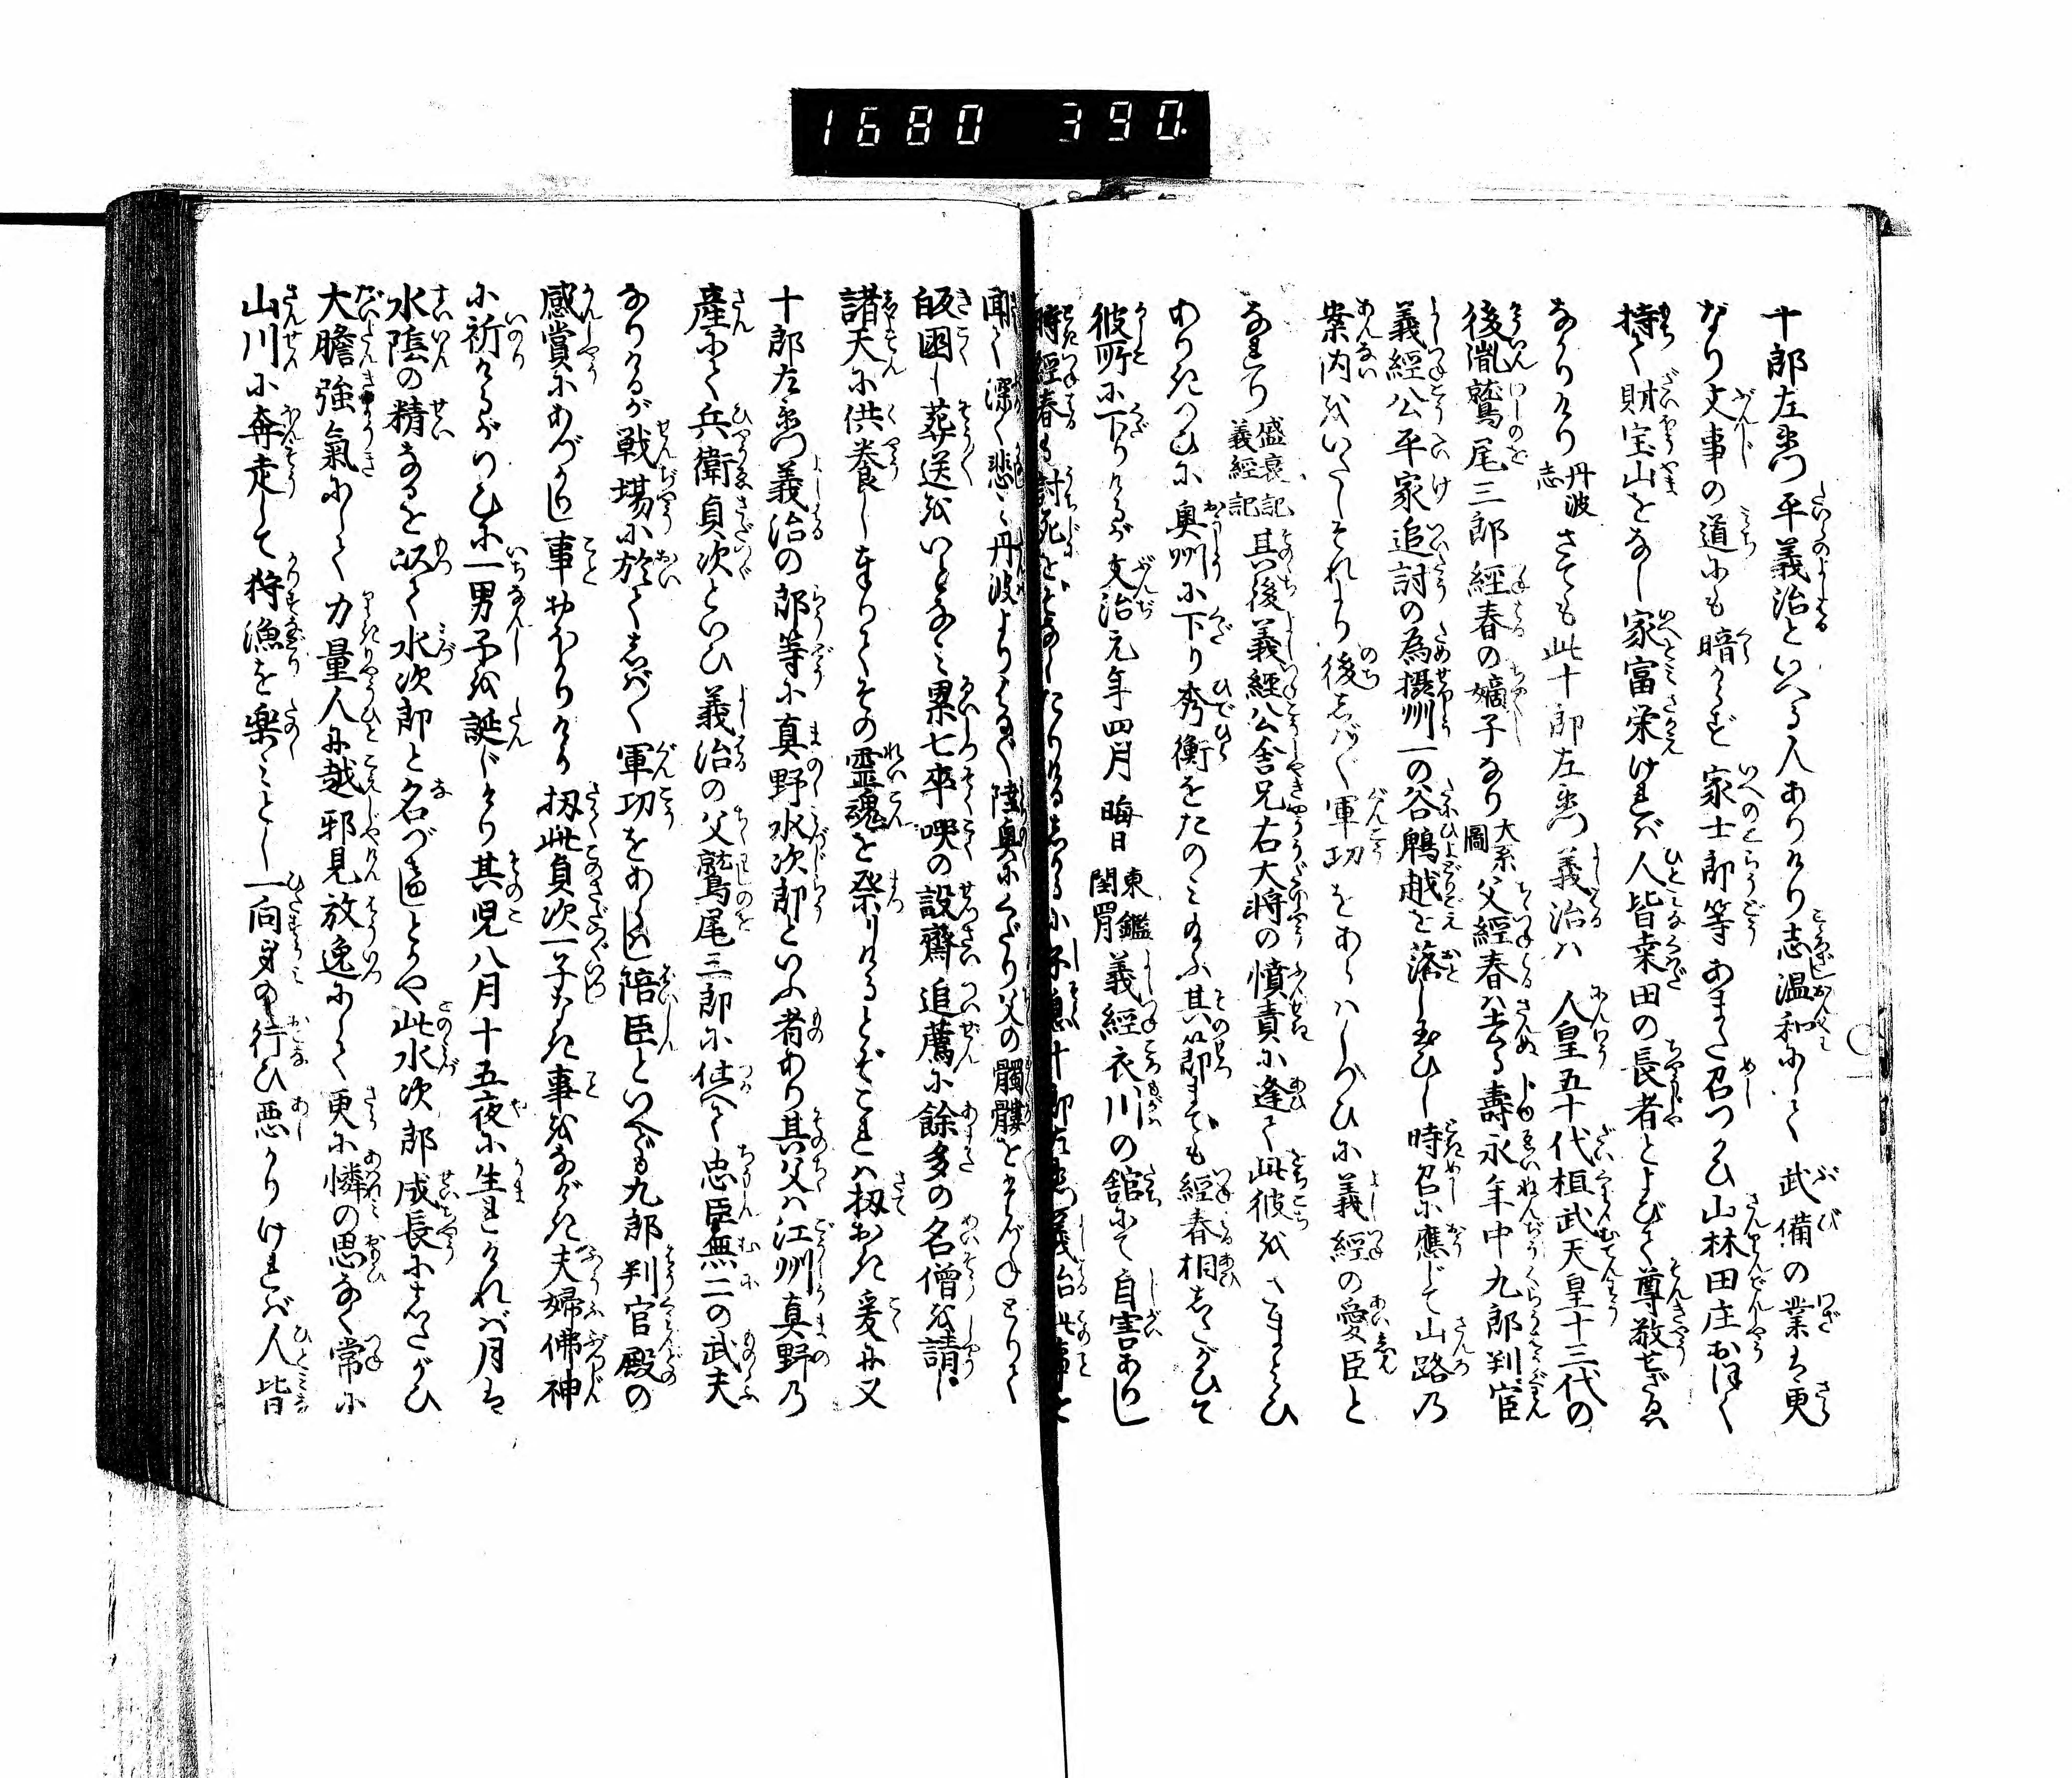 1680 390.
十郎左衛門平義治といへる人ありけり志温和にして武備の業は更
なり文事の道にも暗からず家士郎等あまた召つかひ山林田庄おほく
持て財宝山をなし家富栄ければ人皆桒田の長者とよびて尊敬せざるは
なかりけり丹波志さても此十郎左衛門義治ハ人皇五十代桓武天皇十三代の
後胤鷲尾三郎經春の嫡子なり大系圖父經春ハ去る壽永年中九郎判官
義經公平家追討の為摂州一の谷鵯越を落し玉ひし時召に應じて山路乃
案内をいたしそれより後しば〱軍功をあらハしつひに義經の愛臣と
なれり盛衰記義經記其後義經公舎兄右大将の憤責に逢て此彼をさまよひ
ありきつひに奥州に下り秀衡をたのミ玉ふ其節までも經春相したがひて
彼所に下りけるが文治元年四月晦日東鑑閏四月義經衣川の舘にて自害ありし
時經春も討死をぞなしたりけるしかるに子息十郎左衛門義治此事を
聞て深く悲ミ丹波よりはる〲陸奥にくだり父の髑髏をたづねとりて
皈國し葬送をいとなミ累七卒哭の設齋追薦に餘多の名僧を請し
諸天に供養しまゐりてその霊魂を祭りけるとぞこれハ扨おき爰に又
十郎左衛門義治の郎等に真野水次郎といふ者あり其父ハ江州真野乃
産にて兵衛貞次といひ義治の父鷲尾三郎に仕へて忠臣無二の武夫
なりけるが戦場に於てしば〱軍功をあらはし陪臣といへども九郎判官殿の
感賞にあづかりし事おほかりけり扨此貞次一子なき事をなげき夫婦佛神
に祈けるがつひに一男子を誕じけり其児八月十五夜に生れければ月は
水陰の精なるを以て水次郎と名づけしとかや此水次郎成長にしたがひ
大膽強氣にして力量人に越邪見放逸にして更に憐の思なく常に
山川に奔走して狩漁を楽ミとし一向身の行ひ悪かりければ人皆